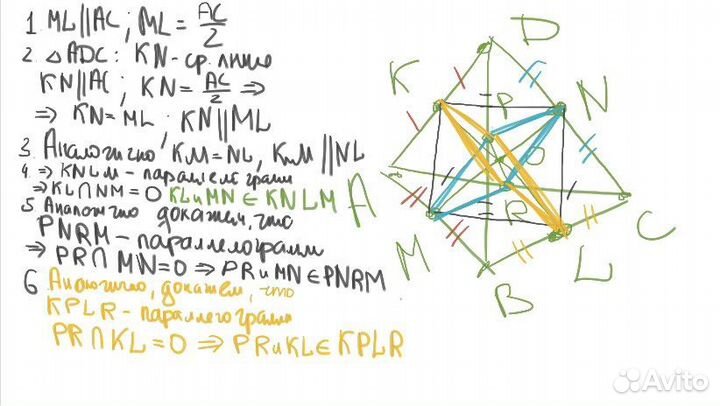 1. ML||AC; ML = AC/2
2. △ADC: KN - ср. линия
KN||AC; KN = AC/2 ⇒
⇒ KN = ML; KN||ML
3. Аналогично KM = NL, KM||NL
4. ⇒ KNLM - параллелограмм
⇒ KL∩NM = O KL и MN ∈ KNLM
5 Аналогично докажем, что
PNRM - параллелограмм
⇒ PR∩MN = O ⇒ PR и MN ∈ PNRM
6 Аналогично, докажем, что
KPLR - параллелограмм
PR∩KL = O ⇒ PR и KL ∈ KPLR
D
K
P
N
O
A
R
C
M
L
B
Avito